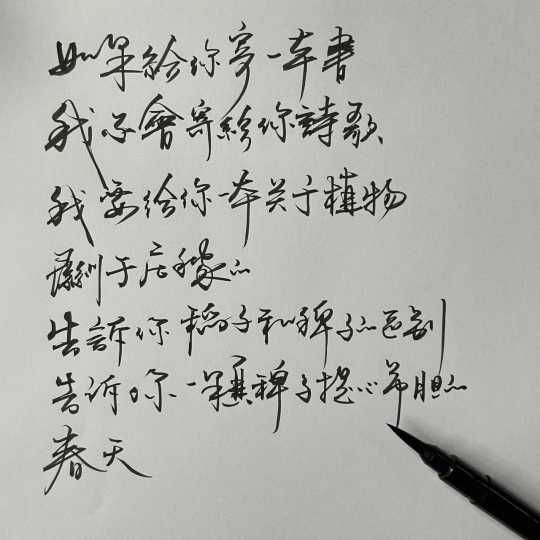 如果給你寄一本書
我不會寄給你詩歌
我要給你一本关于植物
關于庄稼的
告訴你稻子和稗子的区别
告诉你一棵稗子提心吊胆的
春天